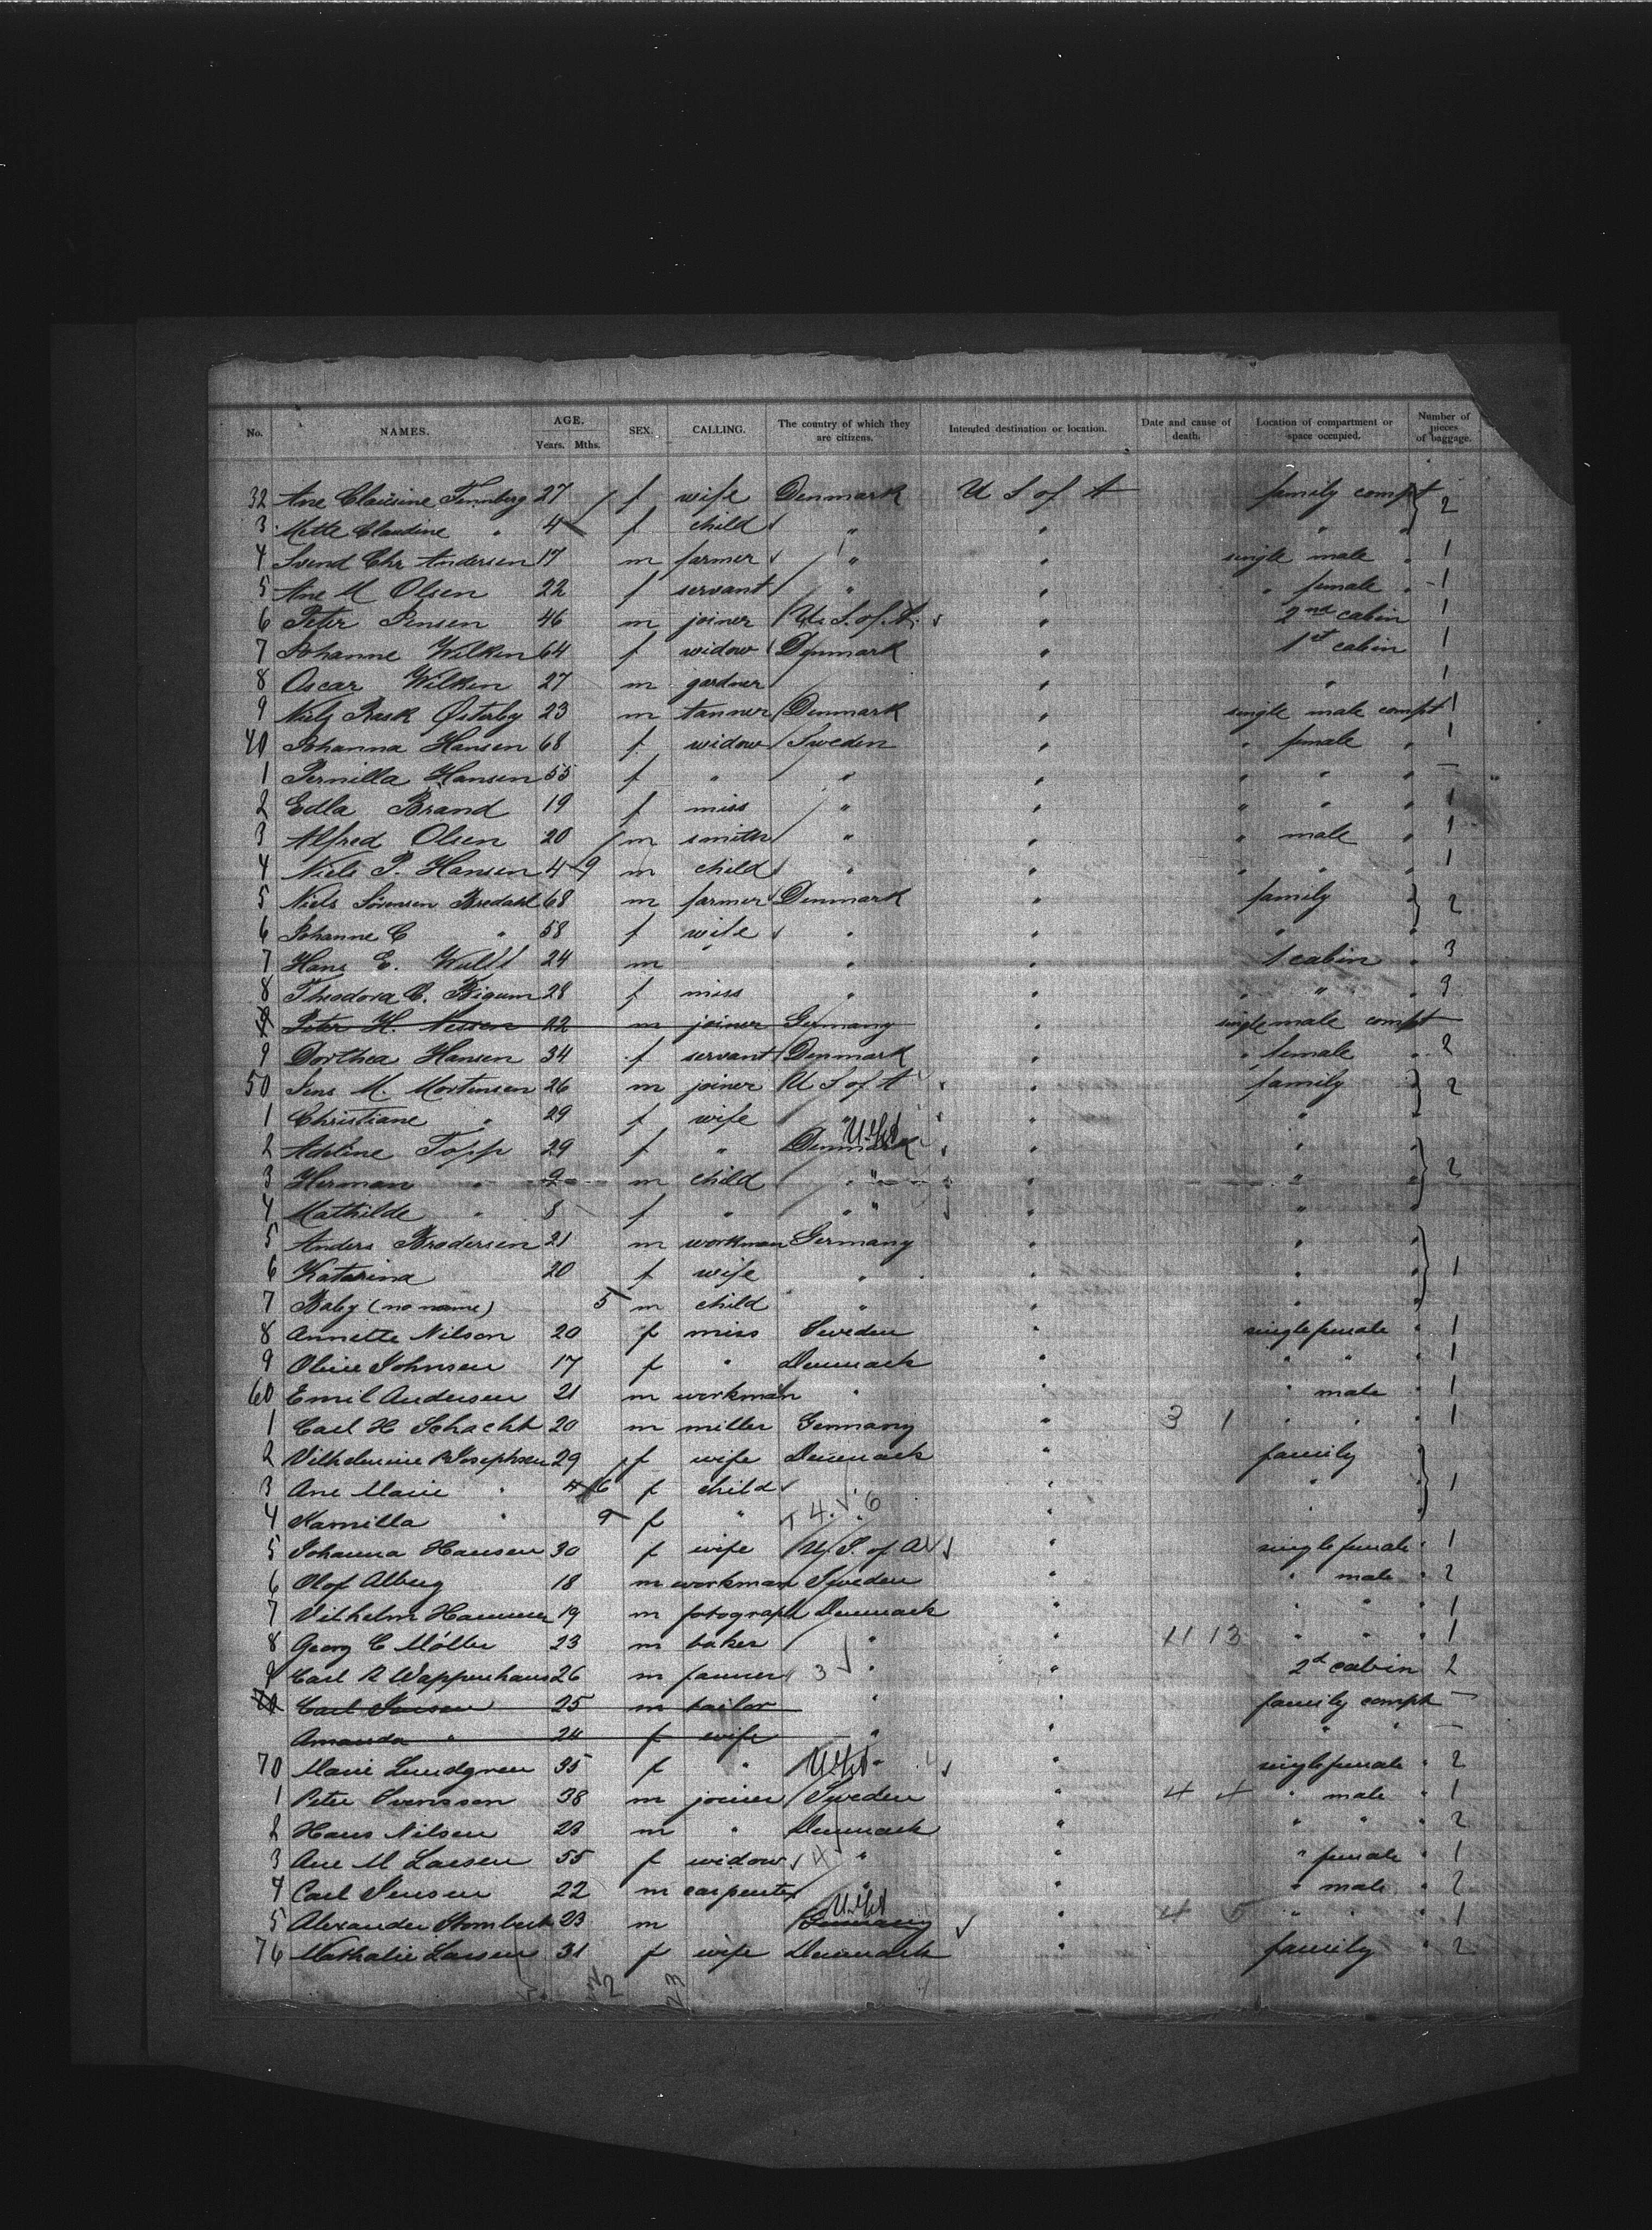 No. NAMES. AGE. Years. Mths. SEX. CALLING. The country of which they are citizens. Intended destination or location. Date and cause of death. Location of compartment or space occupied. Number of pieces of baggage.
32 Ane Claisine 27 f wife Denmark U S of A family compt 2
3 Mette Claudine " 4 f child " " " "
4 Svend Chr Andersen 17 m farmer " " single male " 1
5 Ane M Olsen 22 f servant " " " female " 1
6 Peter Jensen 46 m joiner U. S. of A. " 2nd cabin 1
7 Johanne Wilken 64 f widow Denmark " 1st cabin 1
8 Oscar Wilken 27 m gardner " " 1
9 Niels Rask Østerby 23 m tanner Denmark " single male compt 1
40 Johanna Hansen 68 f widow Sweden " " female " 1
1 Pernilla Hansen 55 f " " " " " " —
2 Edla Brand 19 f miss " " " " 1
3 Alfred Olsen 20 m smith " " " male " 1
4 Niels P. Hansen 4 9 m child " " " " " 1
5 Niels Sørensen Bredahl 68 m farmer Denmark " family " 2
6 Johanne C " 58 f wife " " "
7 Hans E. Wulff 24 m " " 1 cabin " 3
8 Theodora C. Bigum 28 f miss " " " " " 3
9 Peter H. Nissen 22 m joiner Germany " single male compt —
9 Dorthea Hansen 34 f servant Denmark " " female " 2
50 Jens M. Mortensen 26 m joiner U S of A " family " 2
1 Christiane " 29 f wife " " " "
2 Adeline Topp 29 f " Denmark " " "
3 Herman " 9 m child " " " " 2
4 Mathilde " 8 f " " " " "
5 Anders Brodersen 21 m workman Germany " " "
6 Katarina 20 f wife " " " " 1
7 Baby (no name) 5 m child " " " "
8 Annette Nilson 20 f miss Sweden " single female " 1
9 Oline Johnsen 17 f " Denmark " " " " 1
60 Emil Andersen 21 m workman " " " male " 1
1 Carl H Schacht 20 m miller Germany " 3 1 " " " 1
2 Vilhelmine B Josephsen 29 f wife Denmark " family
3 Ane Marie " 4 6 f child " " 1
4 Kamilla " 9 f " 4. 6 " "
5 Johanna Hansen 30 f wife U. S. of A " single female " 1
6 Olof Alberg 18 m workman Sweden " " male " 2
7 Vilhelm Hammer 19 m fotograph Denmark " " " " 1
8 Georg C Möller 23 m baker " " 11 13 " " " 1
9 Carl R Wappenhaus 26 m farmer 3 " " 2d cabin 2
70 Carl Jensen 25 m tailor " " family compt —
Amanda " 24 f wife " " " " —
70 Marie Lundgren 35 f " " " single female " 2
1 Peter Svensson 38 m joiner Sweden " 4 4 " male " 1
2 Hans Nilsen 23 m " Denmark " " " " 2
3 Ane M Larsen 55 f widow 4 " " " female " 1
4 Carl Jensen 22 m carpenter " " " male " 2
5 Alexander 23 m Germany " 4 5 " " " 1
76 Nathalie Larsen 31 f wife Denmark " family " 2